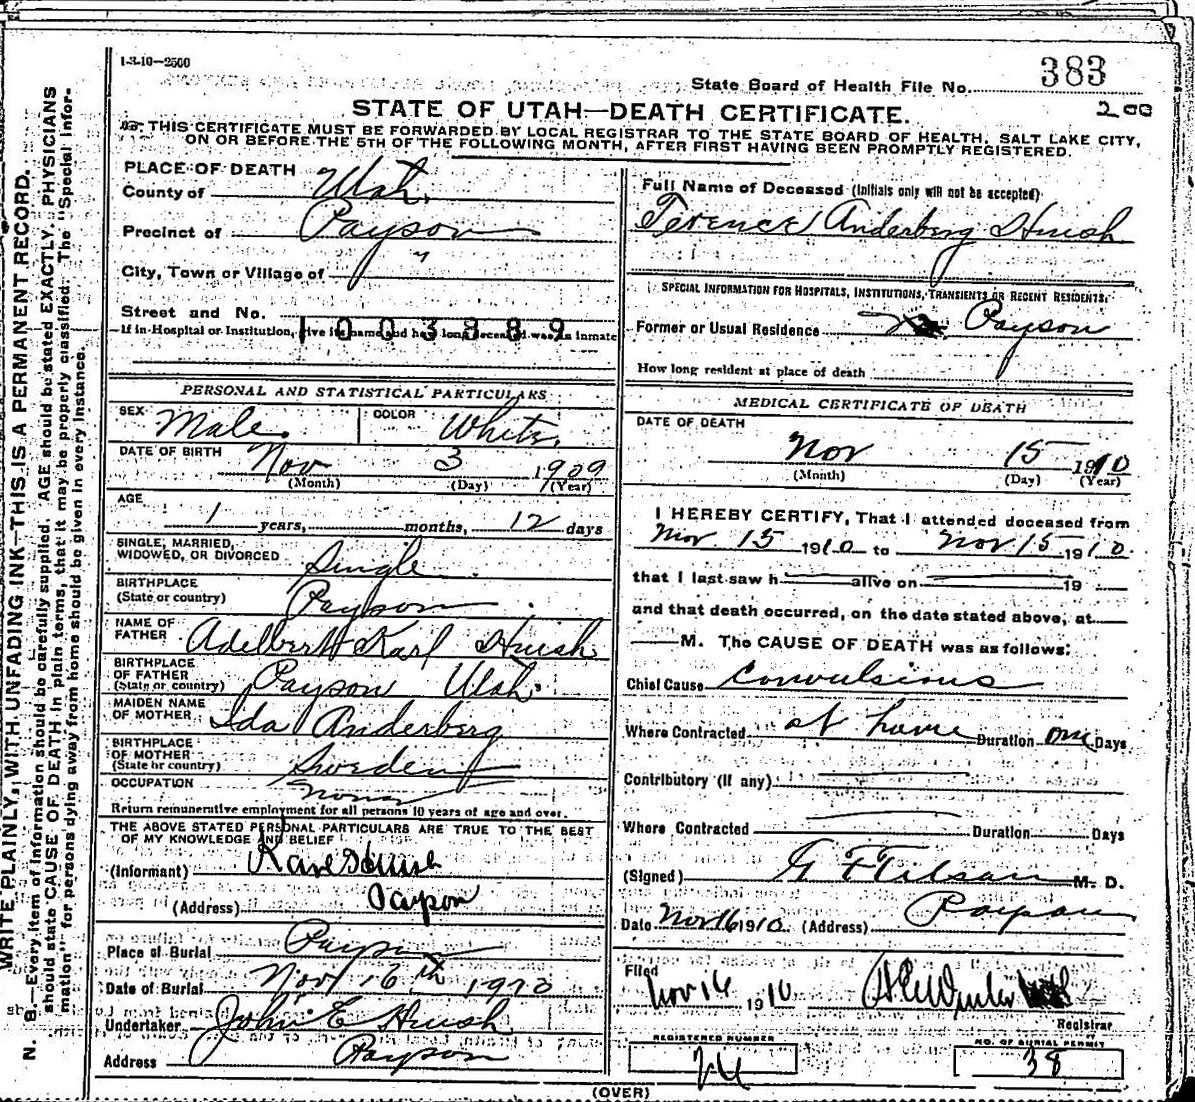 1-3-10—2500
State Board of Health File No. 383
200
STATE OF UTAH—DEATH CERTIFICATE.
THIS CERTIFICATE MUST BE FORWARDED BY LOCAL REGISTRAR TO THE STATE BOARD OF HEALTH, SALT LAKE CITY,
ON OR BEFORE THE 5TH OF THE FOLLOWING MONTH, AFTER FIRST HAVING BEEN PROMPTLY REGISTERED.
PLACE OF DEATH
County of Utah.
Precinct of Payson
City, Town or Village of "
Street and No.
1003889
If in Hospital or Institution, give its name and how long deceased was an inmate
PERSONAL AND STATISTICAL PARTICULARS
SEX Male. COLOR White.
DATE OF BIRTH Nov 3 1909
(Month) (Day) (Year)
AGE 1 years, months, 12 days
SINGLE, MARRIED,
WIDOWED, OR DIVORCED Single.
BIRTHPLACE
(State or country) Payson.
NAME OF
FATHER Adelbert Karl Huish
BIRTHPLACE
OF FATHER
(State or country) Payson Utah.
MAIDEN NAME
OF MOTHER Ida Anderberg
BIRTHPLACE
OF MOTHER
(State or country) Sweden
OCCUPATION none
Return remunerative employment for all persons 10 years of age and over.
THE ABOVE STATED PERSONAL PARTICULARS ARE TRUE TO THE BEST
OF MY KNOWLEDGE AND BELIEF
(Informant) Huish
(Address) Payson
Place of Burial Payson
Date of Burial Nov 16th 1910
Undertaker John E Huish
Address Payson
Full Name of Deceased (Initials only will not be accepted)
Terence Anderberg Huish
SPECIAL INFORMATION FOR HOSPITALS, INSTITUTIONS, TRANSIENTS OR RECENT RESIDENTS:
Former or Usual Residence Payson
How long resident at place of death
MEDICAL CERTIFICATE OF DEATH
DATE OF DEATH
Nov 15 1910
(Month) (Day) (Year)
I HEREBY CERTIFY, That I attended deceased from
Nov. 15 1910 to Nov 15 1910.
that I last saw h alive on 19
and that death occurred, on the date stated above, at
M. The CAUSE OF DEATH was as follows:
Chief Cause Convulsions
Where Contracted at home Duration one Days
Contributory (if any)
Where Contracted Duration Days
(Signed) M. D.
Date Nov 16 1910 (Address) Payson
Filed
Nov 16 1910
Registrar
REGISTERED NUMBER
NO. OF BURIAL PERMIT
38
(OVER)
WRITE PLAINLY, WITH UNFADING INK—THIS IS A PERMANENT RECORD.
N. B.—Every item of information should be carefully supplied. AGE should be stated EXACTLY. PHYSICIANS
should state CAUSE OF DEATH in plain terms, that it may be properly classified. The "Special Infor-
mation" for persons dying away from home should be given in every instance.